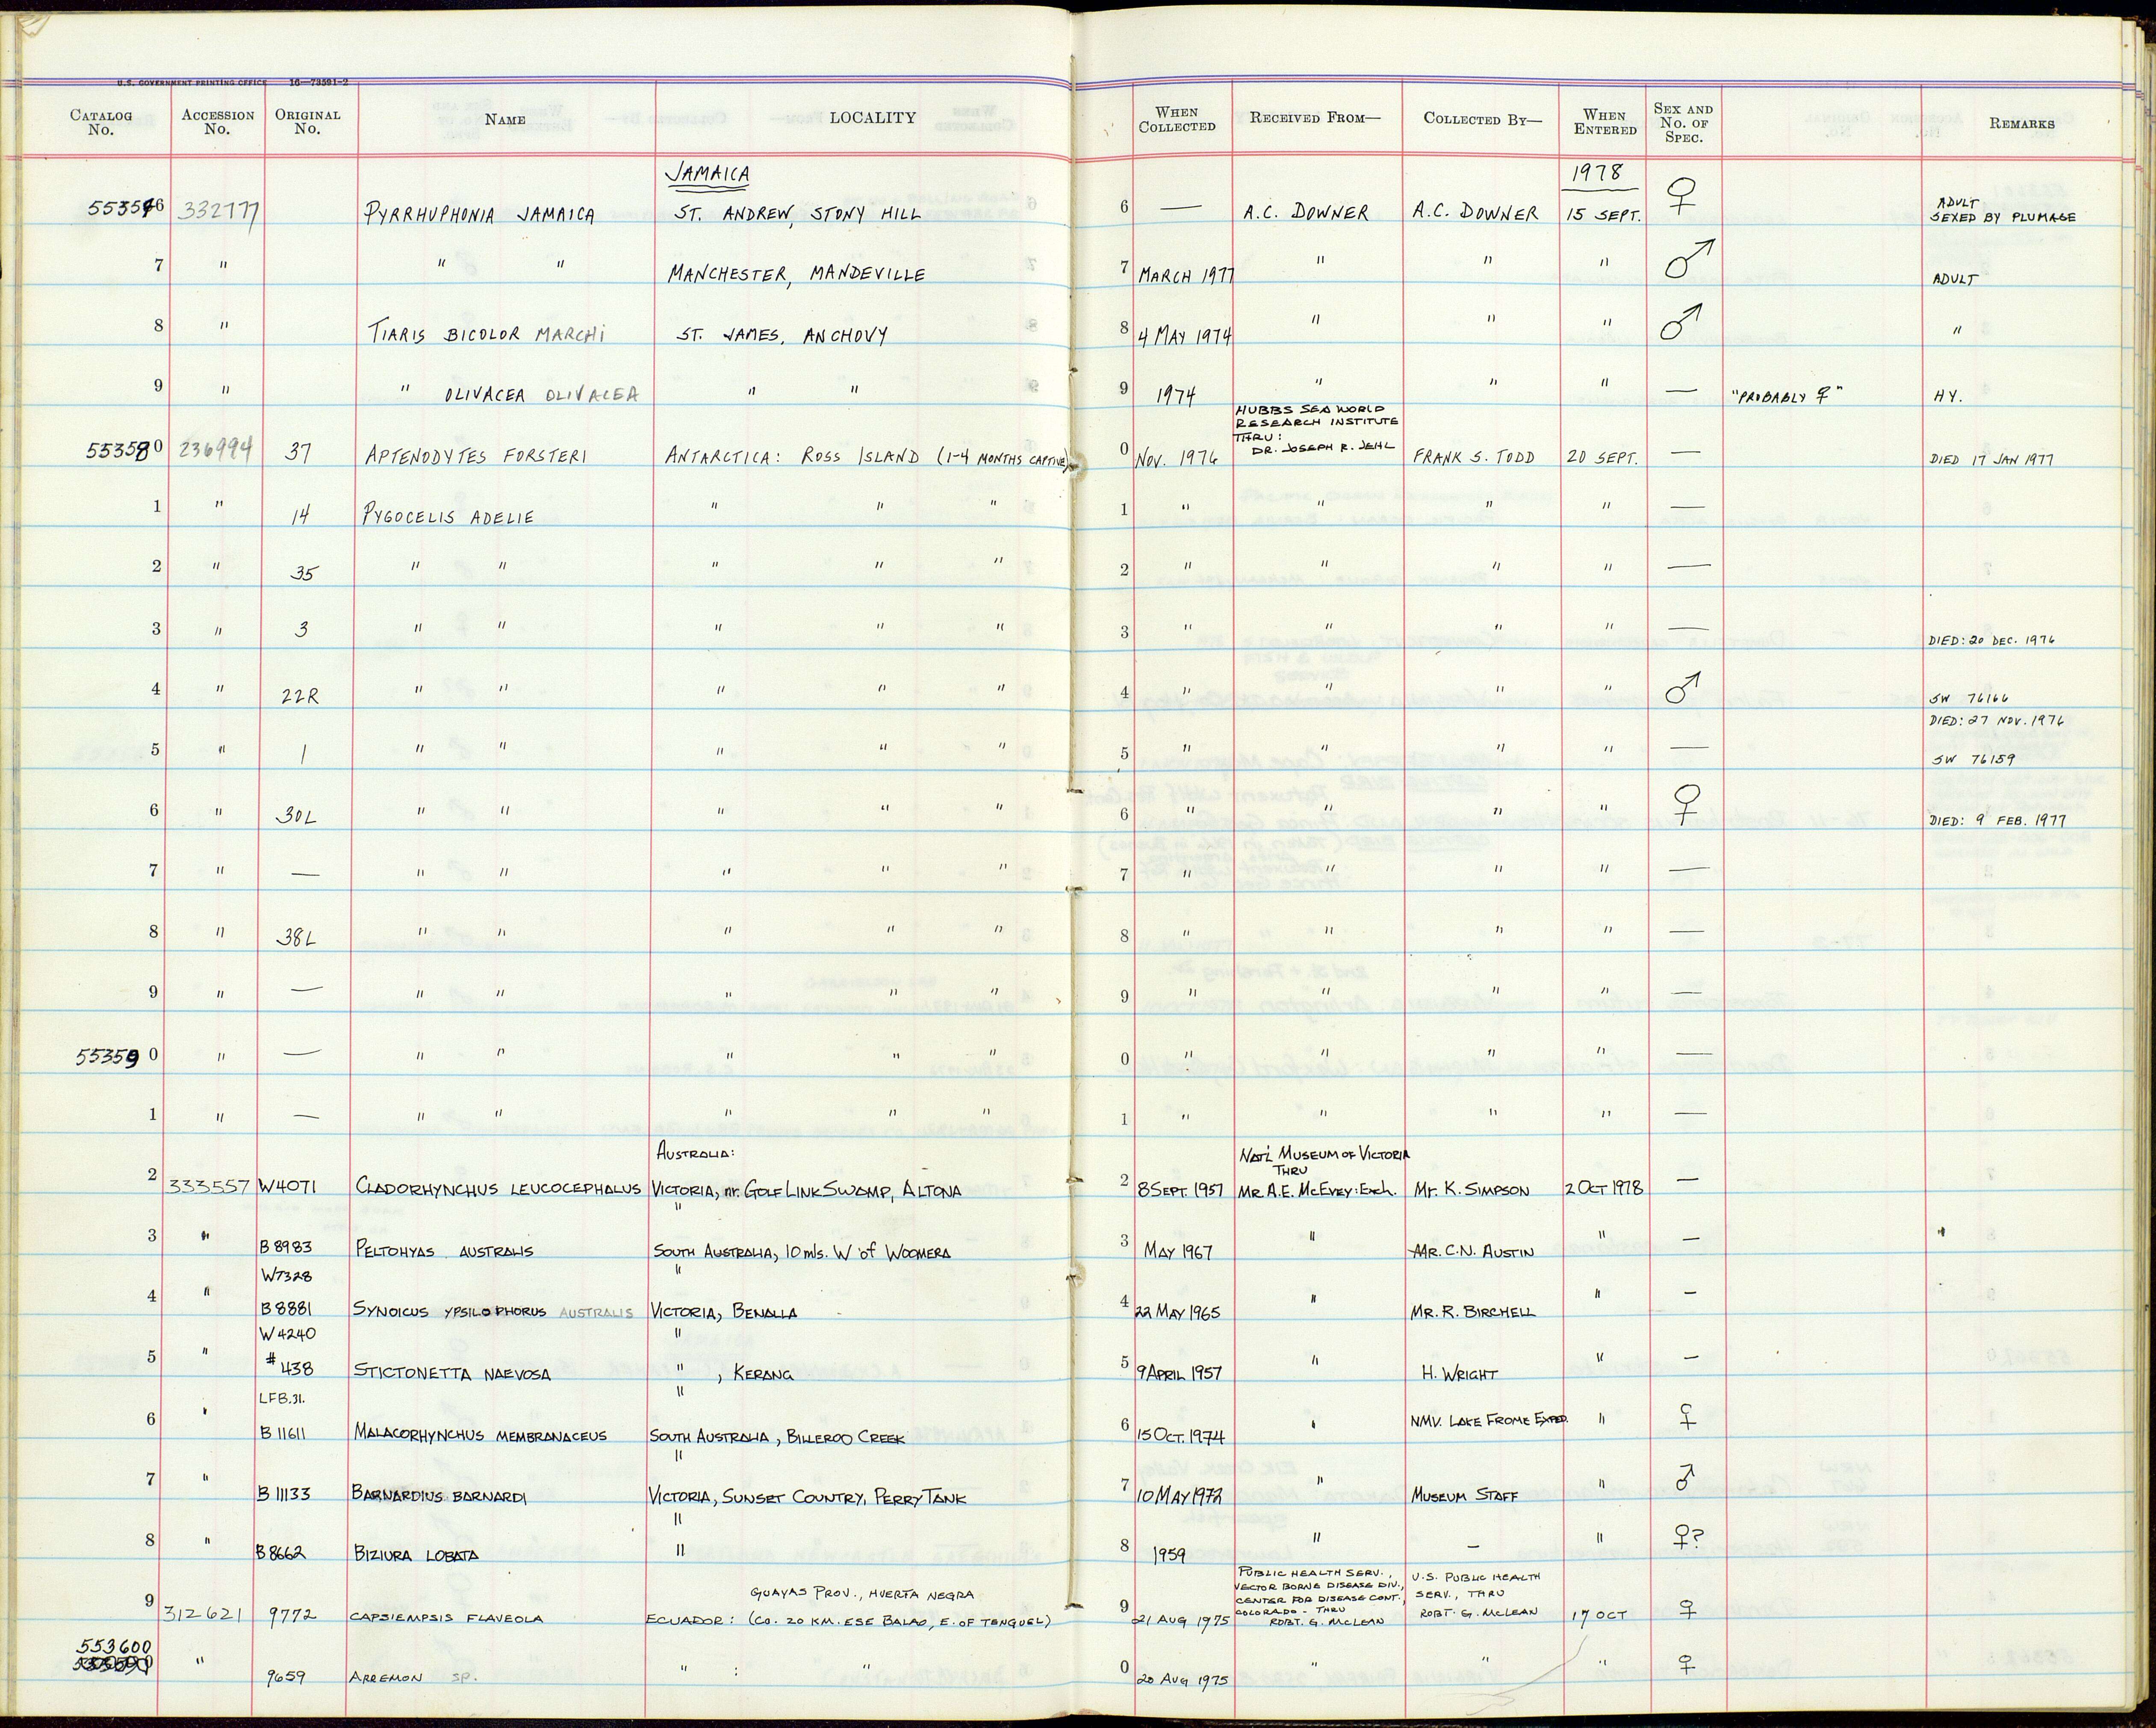 U.S. GOVERNMENT PRINTING OFFICE 16—73591-2
CATALOG No. ACCESSION No. ORIGINAL No. NAME LOCALITY WHEN COLLECTED RECEIVED FROM— COLLECTED BY— WHEN ENTERED SEX AND No. OF SPEC. REMARKS
JAMAICA 1978
553576 332777 PYRRHUPHONIA JAMAICA ST. ANDREW, STONY HILL 6 — A.C. DOWNER A.C. DOWNER 15 SEPT. ♀ ADULT SEXED BY PLUMAGE
7 " " " MANCHESTER, MANDEVILLE 7 MARCH 1977 " " " ♂ ADULT
8 " TIARIS BICOLOR MARCHI ST. JAMES, ANCHOVY 8 4 MAY 1974 " " " ♂ "
9 " " OLIVACEA OLIVACEA " " 9 1974 " " " — "PROBABLY ♀" HY.
HUBBS SEA WORLD
RESEARCH INSTITUTE
THRU:
553580 236994 37 APTENODYTES FORSTERI ANTARCTICA: ROSS ISLAND (1-4 MONTHS CAPTIVE) 0 NOV. 1976 DR. JOSEPH R. JEHL FRANK S. TODD 20 SEPT. — DIED 17 JAN 1977
1 " 14 PYGOCELIS ADELIE " " " 1 " " " " —
2 " 35 " " " " " 2 " " " " —
3 " 3 " " " " " 3 " " " " — DIED: 20 DEC. 1976
4 " 22R " " " " " 4 " " " " ♂ SW 76166
DIED: 27 NOV. 1976
5 " 1 " " " " " 5 " " " " — SW 76159
6 " 30L " " " " " 6 " " " " ♀ DIED: 9 FEB. 1977
7 " — " " " " " 7 " " " " —
8 " 38L " " " " " 8 " " " " —
9 " — " " " " " 9 " " " " —
553590 " — " " " " " 0 " " " " —
1 " — " " " " " 1 " " " " —
AUSTRALIA: NAT'L MUSEUM OF VICTORIA
THRU
2 333557 W4071 CLADORHYNCHUS LEUCOCEPHALUS VICTORIA, nr. GOLF LINK SWAMP, ALTONA 2 8 SEPT. 1957 MR. A.E. McEVEY: Exch. Mr. K. SIMPSON 2 OCT 1978 —
"
3 " B 8983 PELTOHYAS AUSTRALIS SOUTH AUSTRALIA, 10 mls. W of WOOMERA 3 MAY 1967 " MR. C.N. AUSTIN " —
W7328 "
4 " B 8881 SYNOICUS YPSILOPHORUS AUSTRALIS VICTORIA, BENALLA 4 22 MAY 1965 " MR. R. BIRCHELL " —
W 4240 "
5 " # 438 STICTONETTA NAEVOSA " , KERANG 5 9 APRIL 1957 " H. WRIGHT " —
LFB.31. "
6 " B 11611 MALACORHYNCHUS MEMBRANACEUS SOUTH AUSTRALIA, BILLEROO CREEK 6 15 OCT. 1974 " NMV. LAKE FROME EXPED. " ♀
"
7 " B 11133 BARNARDIUS BARNARDI VICTORIA, SUNSET COUNTRY, PERRY TANK 7 10 MAY 1972 " MUSEUM STAFF " ♂
"
8 " B 8662 BIZIURA LOBATA " 8 1959 " — " ♀?
PUBLIC HEALTH SERV., U.S. PUBLIC HEALTH
GUAYAS PROV., HUERTA NEGRA VECTOR BORNE DISEASE DIV., SERV., THRU
CENTER FOR DISEASE CONT.,
COLORADO - THRU
9 312621 9772 CAPSIEMPSIS FLAVEOLA ECUADOR: (CO. 20 KM. ESE BALAO, E. OF TENGUEL) 9 21 AUG 1975 ROBT. G. McLEAN ROBT. G. McLEAN 17 OCT ♀
553600
" 9659 ARREMON SP. " : " 0 20 AUG 1975 " " " ♀